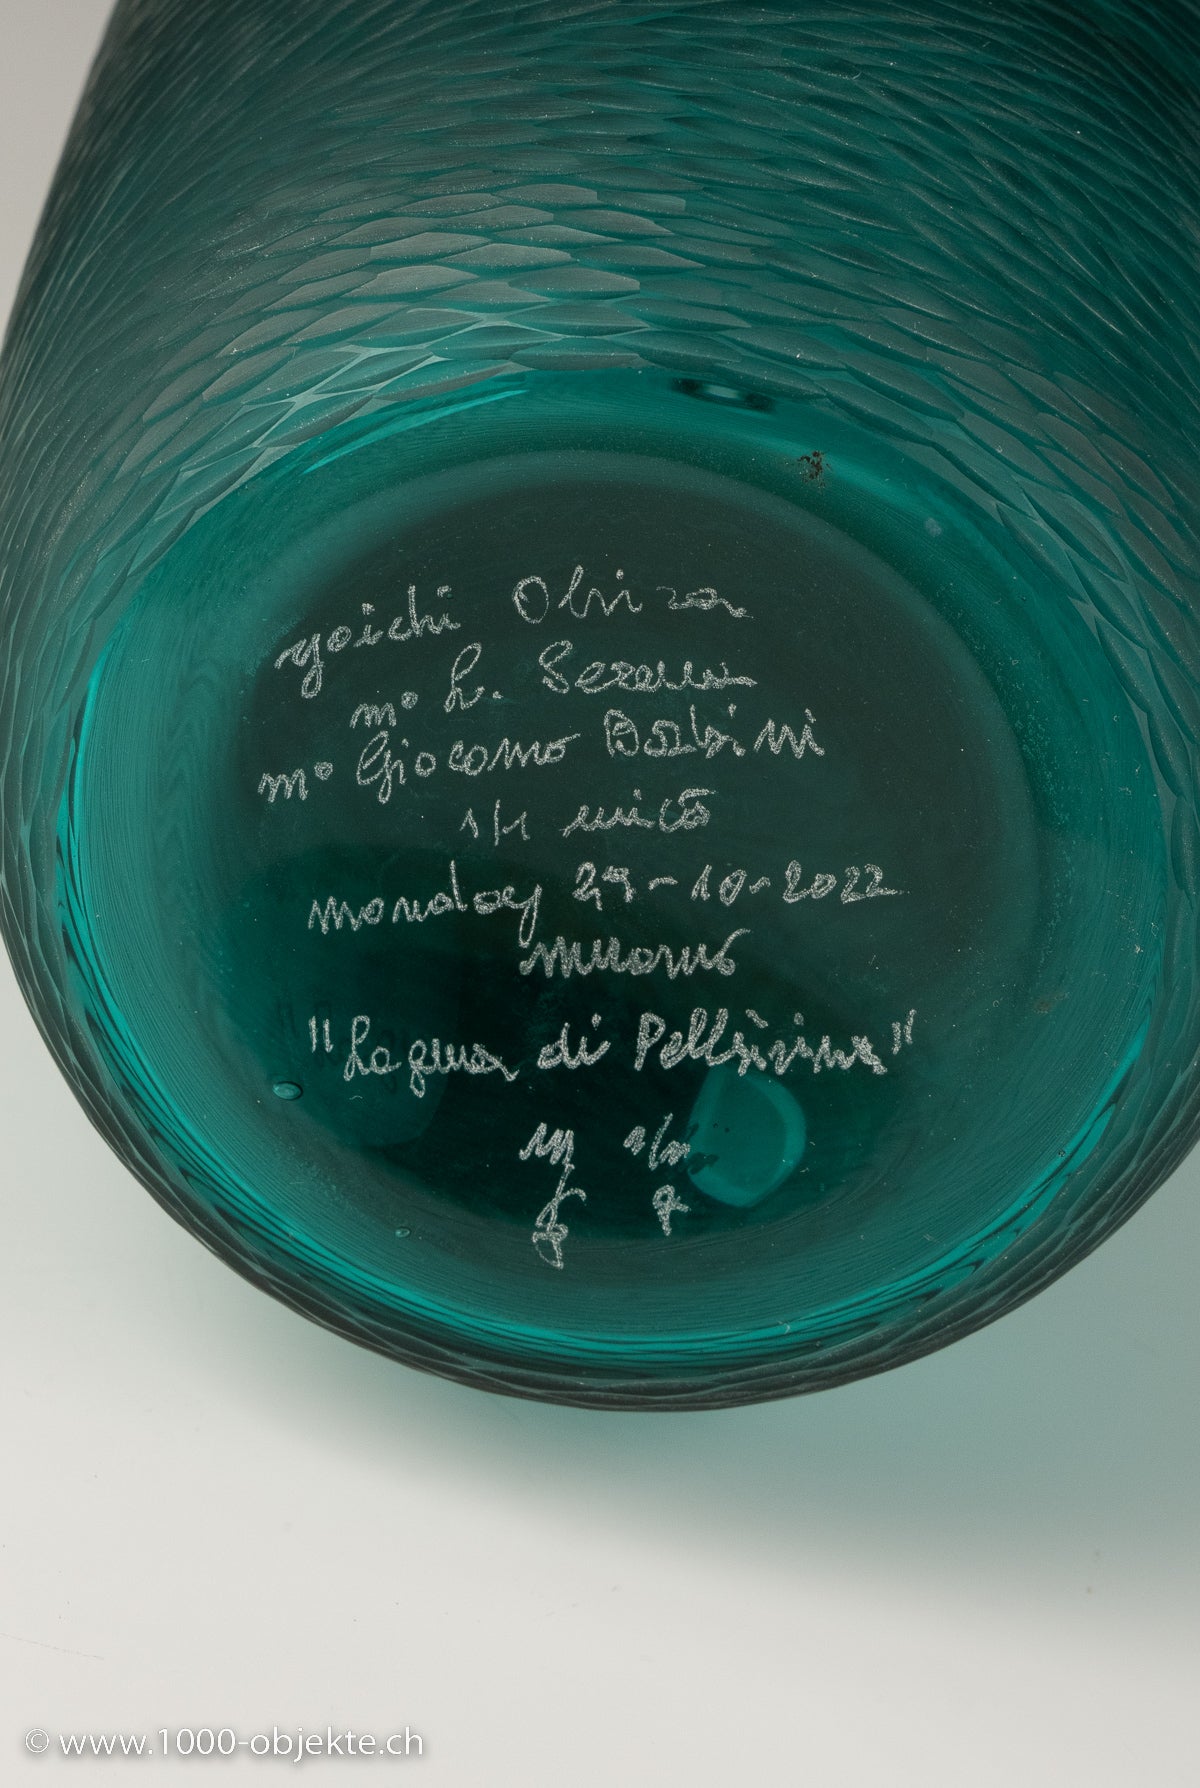 yoichi Ohira
m° L. Serena
m° Giacomo Barbini
1/1 unico
monday 24-10-2022
murano
"Laguna di Pellestrina"
1/1
© www.1000-objekte.ch